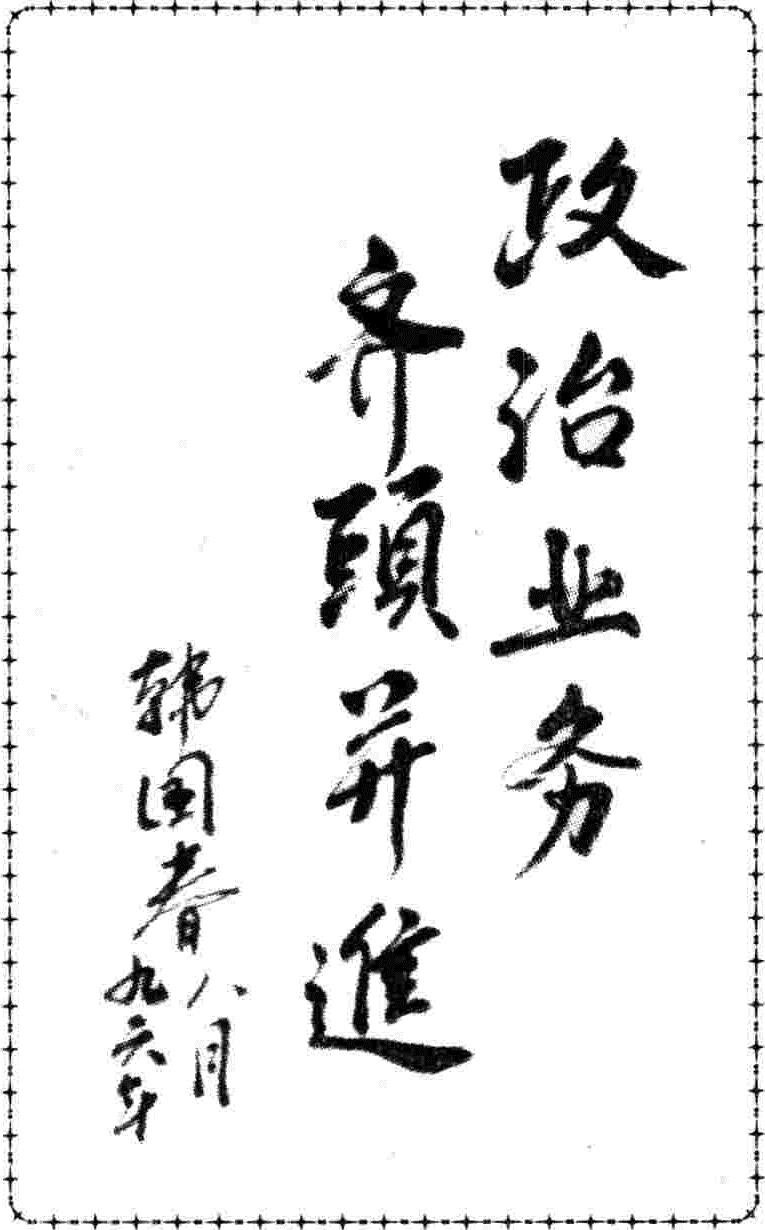 政治业务
齐頭并進
韩国春
九六年
八月